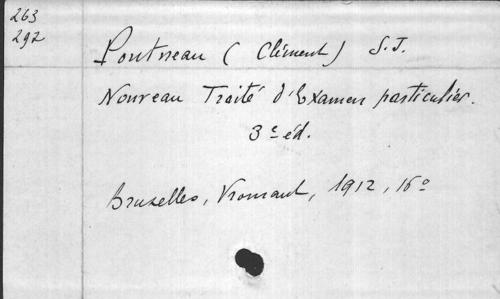 263
292
Pontneau (Clément) S.J.
Nouveau Traité d'Examen particulier.
3e éd.
Bruxelles, Vromant, 1912, 16o